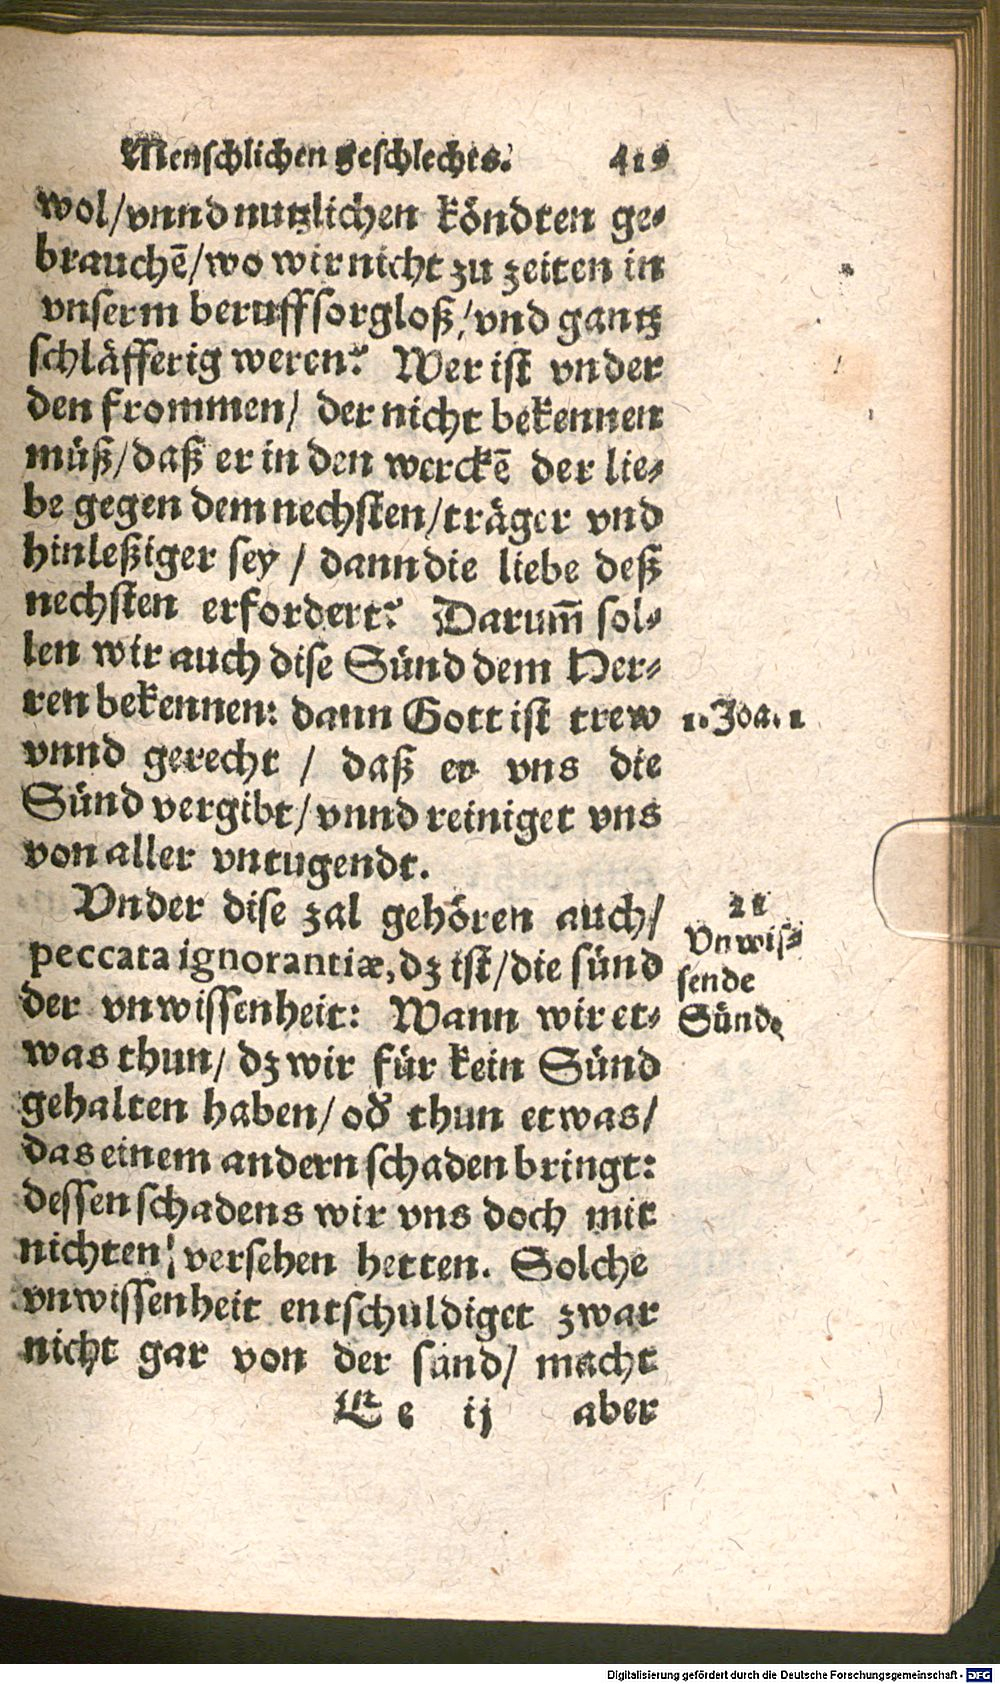 Menschlichen geschlechts. 419
wol/vnnd nutzlichen köndten ge⸗
brauchē/wo wir nicht zu zeiten in
vnserm beruff sorgloß/vnd gantz
schläfferig weren? Wer ist vnder
den frommen/ der nicht bekennen
müß/daß er in den werckē der lie⸗
be gegen dem nechsten/träger vnd
hinleßiger sey / dann die liebe deß
nechsten erfordert? Darum̄ sol⸗
len wir auch dise Sünd dem Her⸗
ren bekennen: dann Gott ist trew
1. Joa. 1
vnnd gerecht / daß er vns die
Sünd vergibt/vnnd reiniget vns
von aller vntugendt.
Vnder dise zal gehören auch/
peccata ignorantiæ, dz ist/die sünd
der vnwissenheit: Wann wir et⸗
was thun/ dz wir für kein Sünd
gehalten haben/ od' thun etwas/
das einem andern schaden bringt:
dessen schadens wir vns doch mit
nichten/ versehen hetten. Solche
vnwissenheit entschuldiget zwar
nicht gar von der sünd/ macht
21
Vnwis⸗
sende
Sünde
Ee ij aber
Digitalisierung gefördert durch die Deutsche Forschungsgemeinschaft - DFG